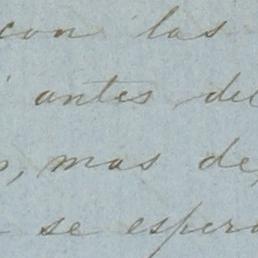 con las
antes del
mas de
se espera